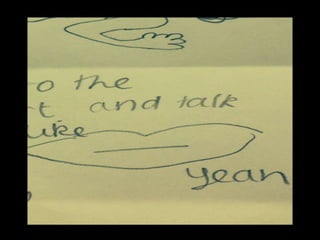 o the
t and talk
like
yeah